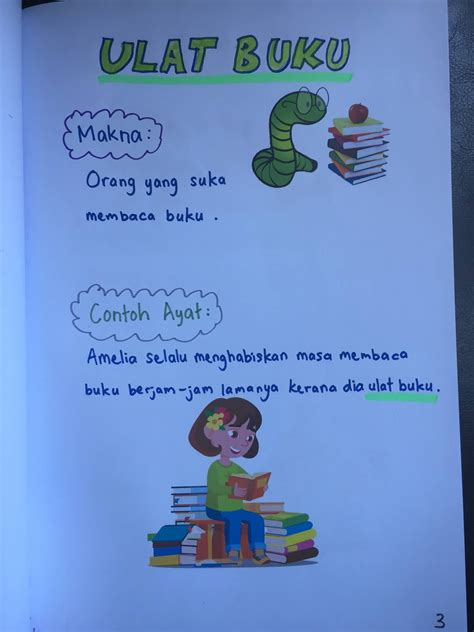 ULAT BUKU
Makna:
Orang yang suka
membaca buku.
Contoh Ayat:
Amelia selalu menghabiskan masa membaca
buku berjam-jam lamanya kerana dia ulat buku.
3